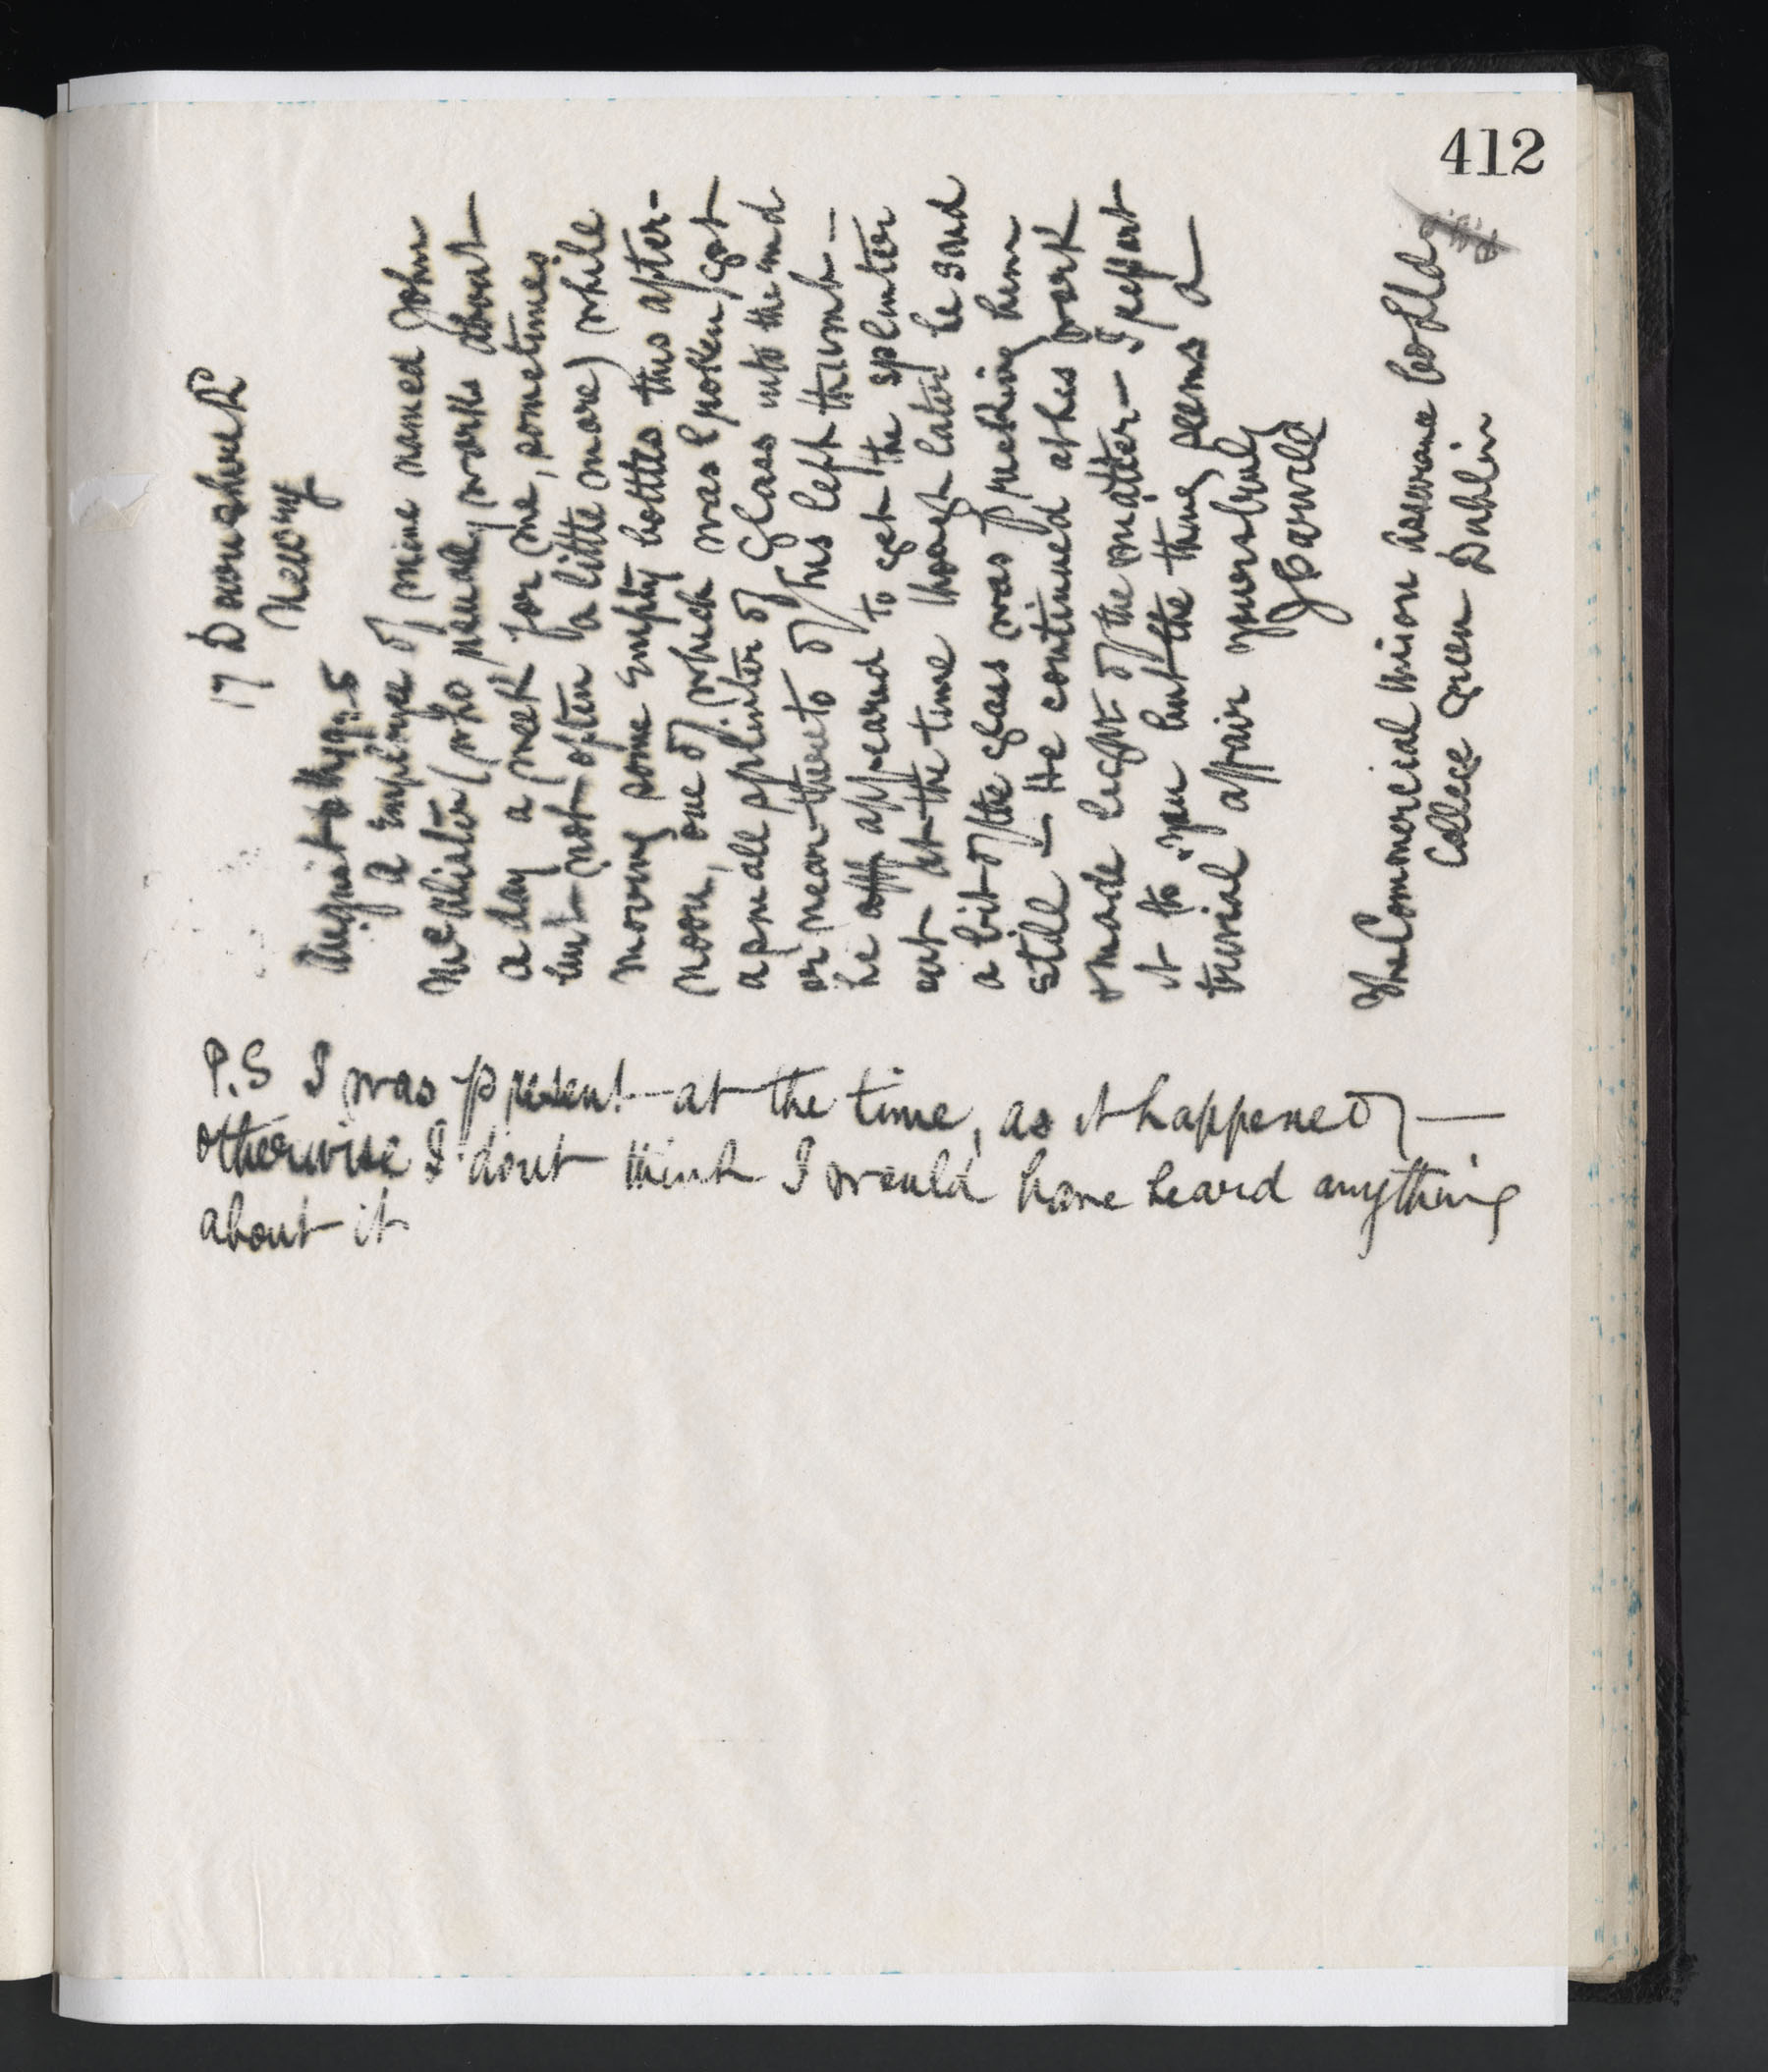 412
17 Downshire Rd
Newry
August 1925
A Employee of mine named John
McAlister (who usually works about
a day a week for me, sometimes
but not often a little more) while
moving some Empty bottles this after-
noon, one of which was broken, got
a small splinter of glass into the end
or near thereto of his left thumb —
he appeared to get the splinter
out at the time though later he said
a bit of the glass was pricking him
still — He continued at his work
& made light of the matter — I report
it to you but the thing seems a
trivial affair yours truly
The Commercial Union Assurance Co Ltd
College Green Dublin
P.S I was present at the time, as it happened —
otherwise I dont think I would have heard anything
about it